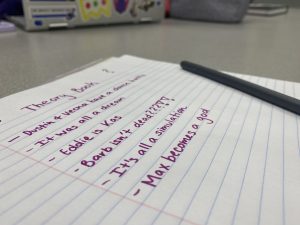 Theory Book
- Dustin & Vecna have a dance battle
- It was all a dream
- Eddie is Kas
- Barb isn't dead????
- It's all a simulation
- Max becomes a god